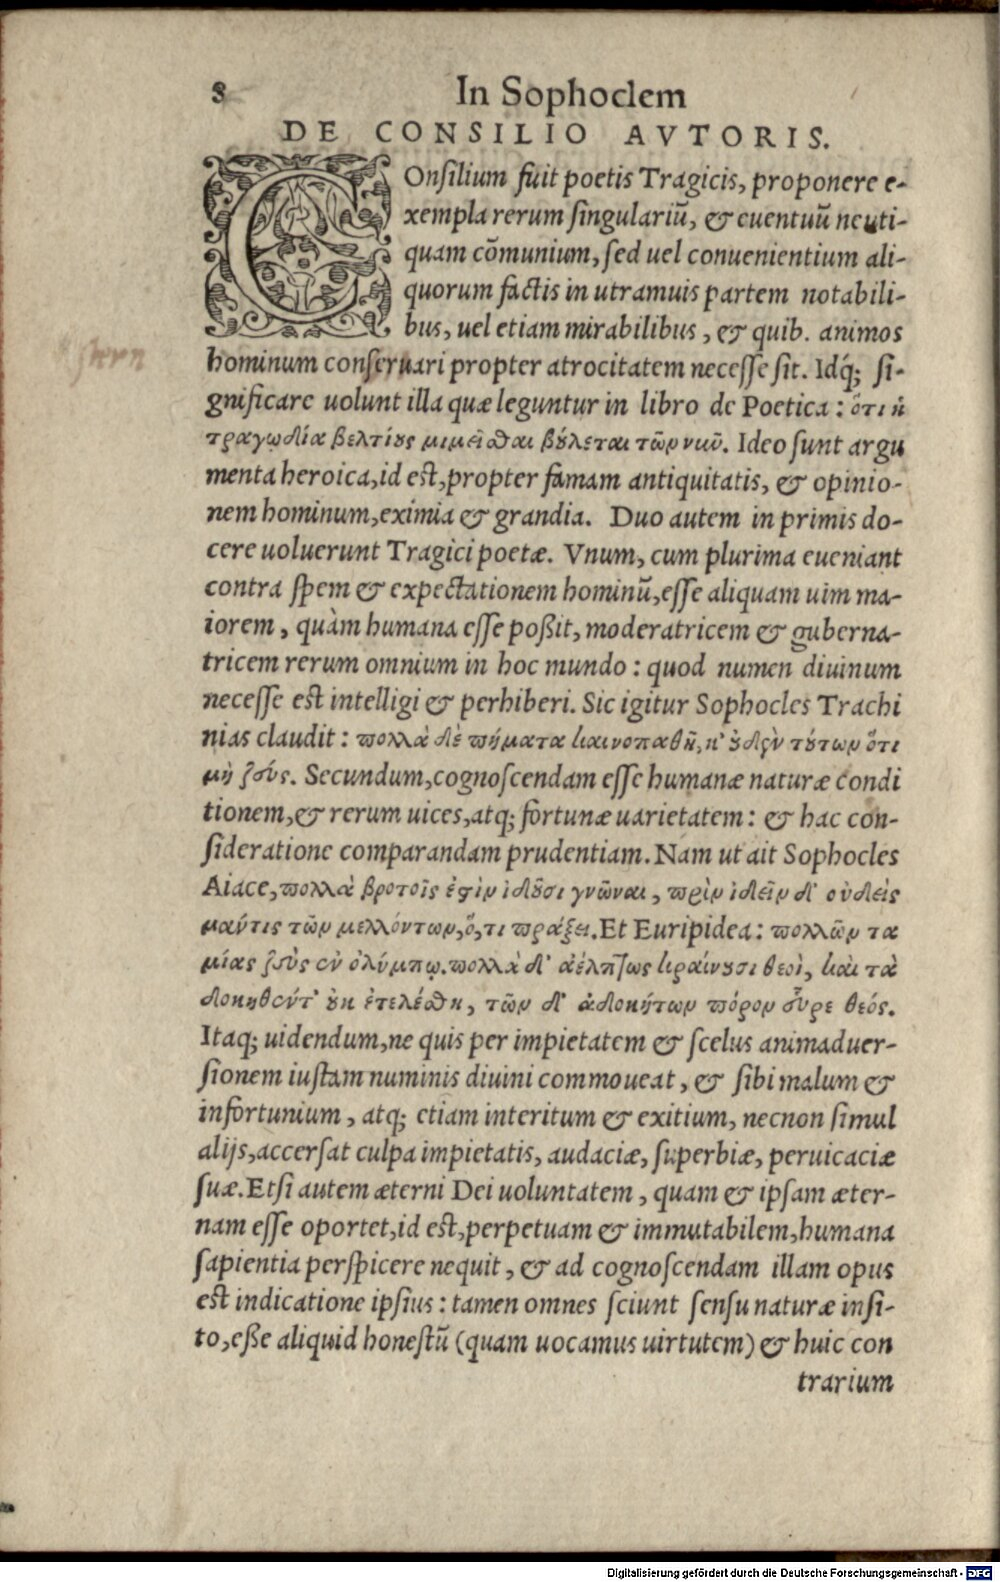 8 In Sophoclem
DE CONSILIO AVTORIS.
COnsilium fuit poetis Tragicis, proponere e-
xempla rerum singulariũ, & euentuũ neuti-
quam cõmunium, sed uel conuenientium ali-
quorum factis in utramuis partem notabili-
bus, uel etiam mirabilibus, & quib. animos
hominum conseruari propter atrocitatem necesse sit. Idq́; si-
gnificare uolunt illa quæ leguntur in libro de Poetica: ὅτι ἡ
τραγῳδία βελτίους μιμεῖσθαι βούλεται τῶν νυῦ. Ideo sunt argu
menta heroica, id est, propter famam antiquitatis, & opinio-
nem hominum, eximia & grandia. Duo autem in primis do-
cere uoluerunt Tragici poetæ. Vnum, cum plurima eueniant
contra spem & expectationem hominũ, esse aliquam uim ma-
iorem, quàm humana esse poßit, moderatricem & guberna-
tricem rerum omnium in hoc mundo: quod numen diuinum
necesse est intelligi & perhiberi. Sic igitur Sophocles Trachi
nias claudit: πολλὰ δὲ πήματα καινοπαθῆ, κ' οὐδὲν τούτων ὅτι
μὴ ζεύς. Secundum, cognoscendam esse humanæ naturæ condi
tionem, & rerum uices, atq; fortunæ uarietatem: & hac con-
sideratione comparandam prudentiam. Nam ut ait Sophocles
Aiace, πολλὰ βροτοῖς ἐστὶν ἰδοῦσι γνῶναι, πρὶν ἰδεῖν δ' οὐδεὶς
μαύτις τῶν μελλόντων, ὅ, τι πράξει. Et Euripidea: πολλῶν τα
μίας ζεὺς ἐν ὀλύμπῳ. πολλὰ δ' ἀέλπτως κραίνουσι θεοὶ, καὶ τὰ
δοκηθέντ' οὐκ ἐτελέσθη, τῶν δ' ἀδοκήτων πόρον εὗρε θεός.
Itaq; uidendum, ne quis per impietatem & scelus animaduer-
sionem iustam numinis diuini commoueat, & sibi malum &
infortunium, atq; etiam interitum & exitium, necnon simul
alijs, accersat culpa impietatis, audaciæ, superbiæ, peruicaciæ
suæ. Etsi autem æterni Dei uoluntatem, quam & ipsam æter-
nam esse oportet, id est, perpetuam & immutabilem, humana
sapientia perspicere nequit, & ad cognoscendam illam opus
est indicatione ipsius: tamen omnes sciunt sensu naturæ insi-
to, eße aliquid honestũ (quam uocamus uirtutem) & huic con
trarium
Digitalisierung gefördert durch die Deutsche Forschungsgemeinschaft - DFG